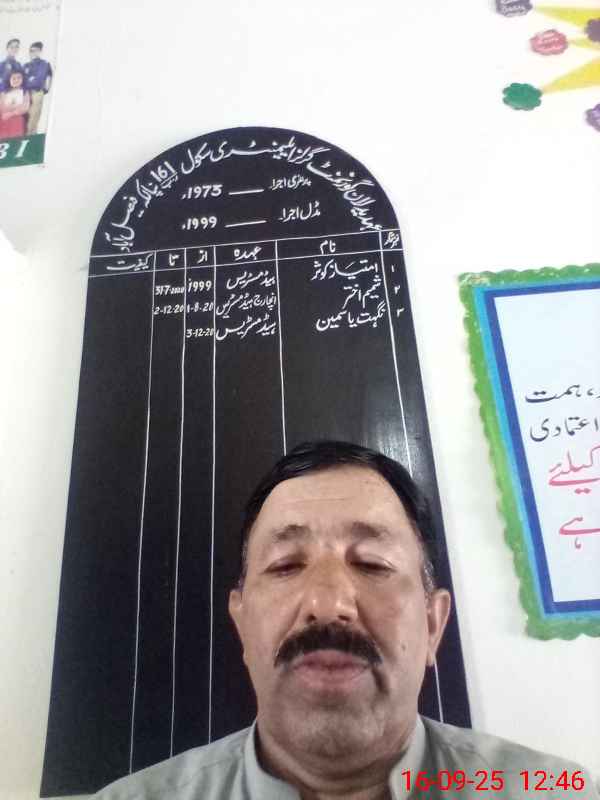 عہدیداران گورنمنٹ گرلز ایلیمنٹری سکول 161 فیصل آباد
پرائمری اجرا۔ 1973ء
مڈل اجرا۔ 1999ء
نمبر شمار نام عہدہ از تا کیفیت
۱ امتیاز کوثر ہیڈمسٹریس 1999 31-7-2020
۲ شمیم اختر انچارج ہیڈمسٹریس 1-8-20 2-12-20
۳ نگہت یاسمین ہیڈمسٹریس 3-12-20
ہمت
اعتمادی
کیلئے
ہے
BI
16-09-25 12:46